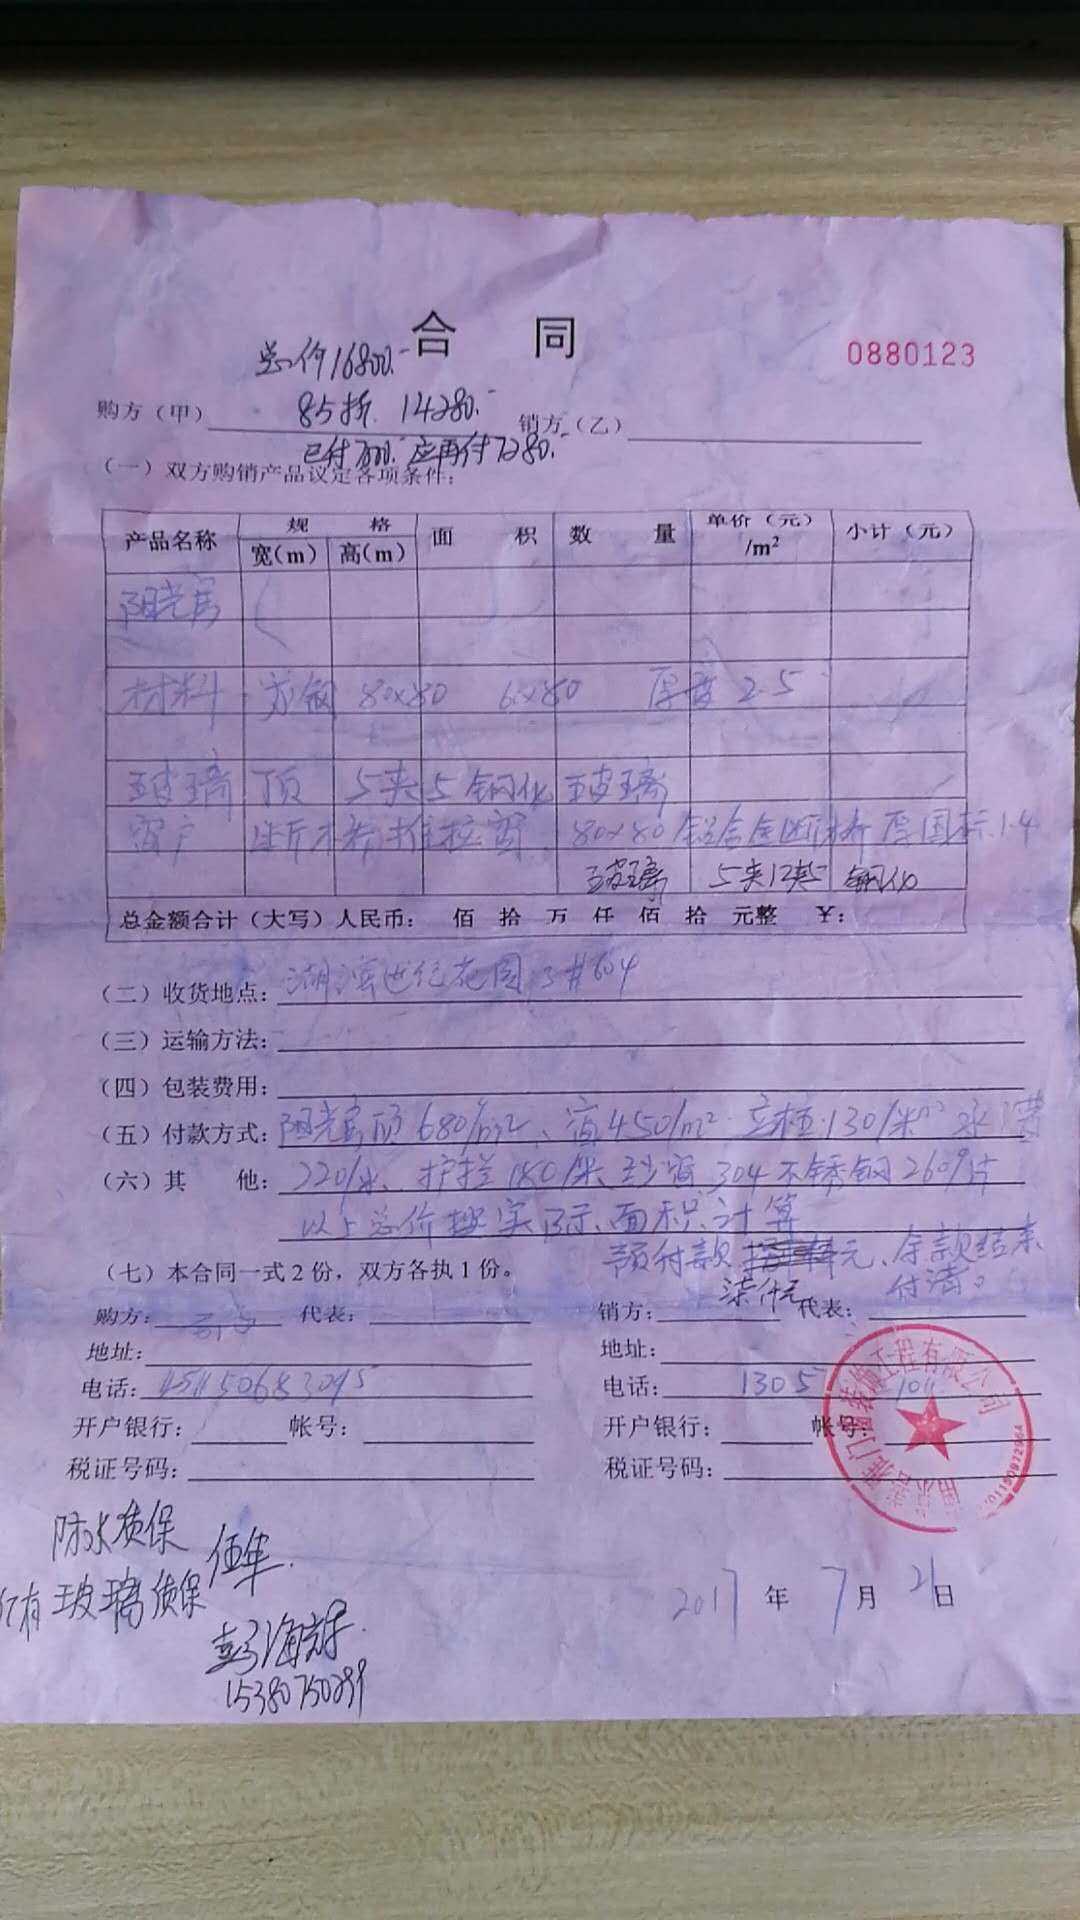 合 同
0880123
总价16800.-
85折 14280.-
购方（甲） 销方（乙）
已付7000.- 应再付7280.-
（一）双方购销产品议定各项条件：
产品名称 规 格 面 积 数 量 单价（元）/m² 小计（元）
宽(m) 高(m)
阳光房
材料 方钢 80×80 6×80 厚度 2.5
玻璃 顶 5夹5 钢化 玻璃
窗户 断桥推拉窗 80×80 铝合金断桥 厚国标1.4
玻璃 5夹12夹5 钢化
总金额合计（大写）人民币： 佰 拾 万 仟 佰 拾 元整 ￥：
（二）收货地点： 湖滨世纪花园3#604
（三）运输方法：
（四）包装费用：
（五）付款方式： 阳光房顶680/m²、窗450/m² 立柱130/米 水槽
（六）其 他： 220/米、护拦180/米 纱窗 304不锈钢260/片
以上总价按实际面积计算
（七）本合同一式2份，双方各执1份。
预付款 元、余款结束
柒仟元 付清。
购方： 代表： 销方： 代表：
地址： 地址：
电话： 电话：1305
开户银行： 帐号： 开户银行： 帐号：
税证号码： 税证号码：
门窗装饰工程有限公司
防水质保 伍年.
玻璃质保
2017 年 7 月 21 日
15380750299